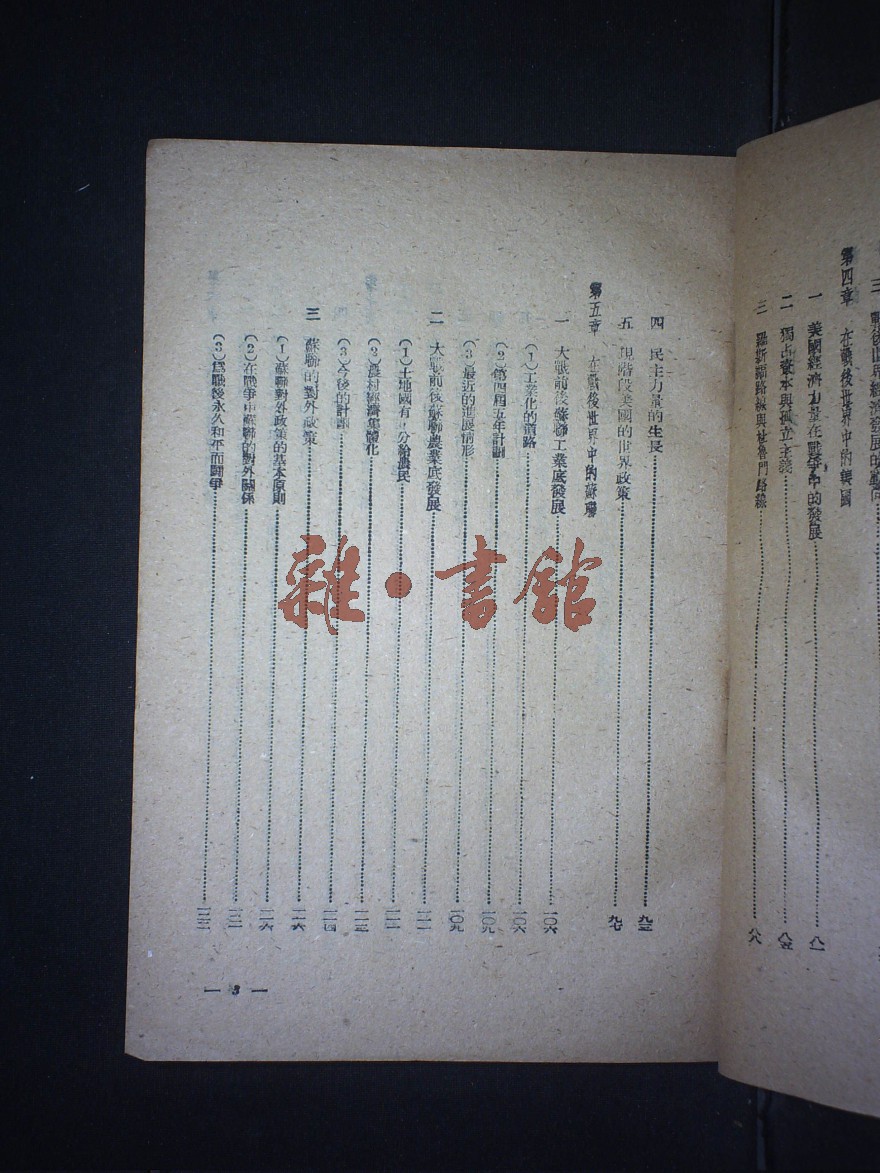 第四章　在戰後世界中的美國
一　美國經濟力量在戰爭中的發展……八一
二　獨占資本與孤立主義……八五
三　羅斯福路線與杜魯門路線……八八
四　民主力量的生長……九三
五　現階段美國的世界政策……九七
第五章　在戰後世界中的蘇聯
一　大戰前後蘇聯工業底發展……一〇六
（1）工業化的道路……一〇六
（2）第四個五年計劃……一〇九
（3）最近的進展情形……一〇九
二　大戰前後蘇聯農業底發展……一一一
（1）土地國有　分給農民……一一一
（2）農村經濟集體化……一一三
（3）今後的計劃……一一四
三　蘇聯的對外政策……一一六
（1）蘇聯對外政策的基本原則……一一六
（2）在戰爭中蘇聯的對外關係
（3）爲戰後永久和平而鬪爭
— 3 —
雜·書館